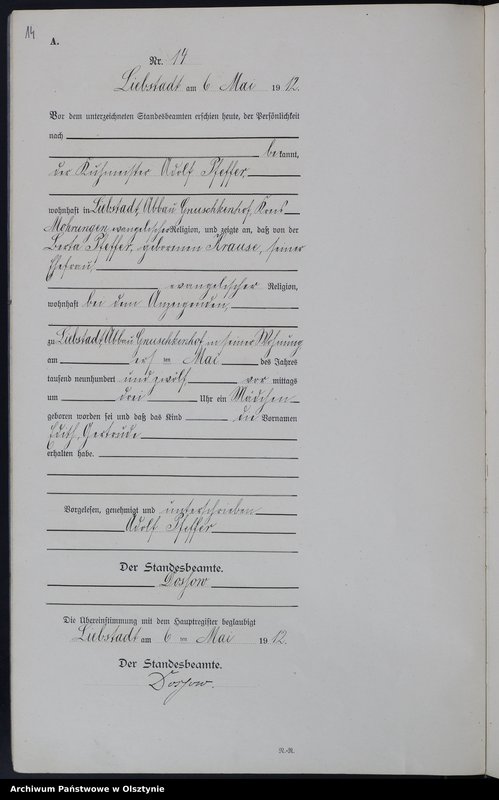 14
A.
Nr. 14
Liebstadt am 6 Mai 1912.
Vor dem unterzeichneten Standesbeamten erschien heute, der Persönlichkeit
nach
bekannt,
der Kuhmeister Adolf Pfeffer
wohnhaft in Liebstadt, Abbau Kreis
Mohrungen evangelischer Religion, und zeigte an, daß von der
Berta Pfeffer, geborenen Krause, seiner
Ehefrau
evangelischer Religion,
wohnhaft bei dem Anzeigenden,
zu Liebstadt, Abbau in seiner Wohnung
am ten Mai des Jahres
tausend neunhundert und zwölf vor mittags
um drei Uhr ein Mädchen
geboren worden sei und daß das Kind die Vornamen
Gertrude
erhalten habe.
Vorgelesen, genehmigt und unterschrieben
Adolf Pfeffer
Der Standesbeamte.
Die Übereinstimmung mit dem Hauptregister beglaubigt
Liebstadt am 6 ten Mai 1912.
Der Standesbeamte.
N.-R.
Archiwum Państwowe w Olsztynie